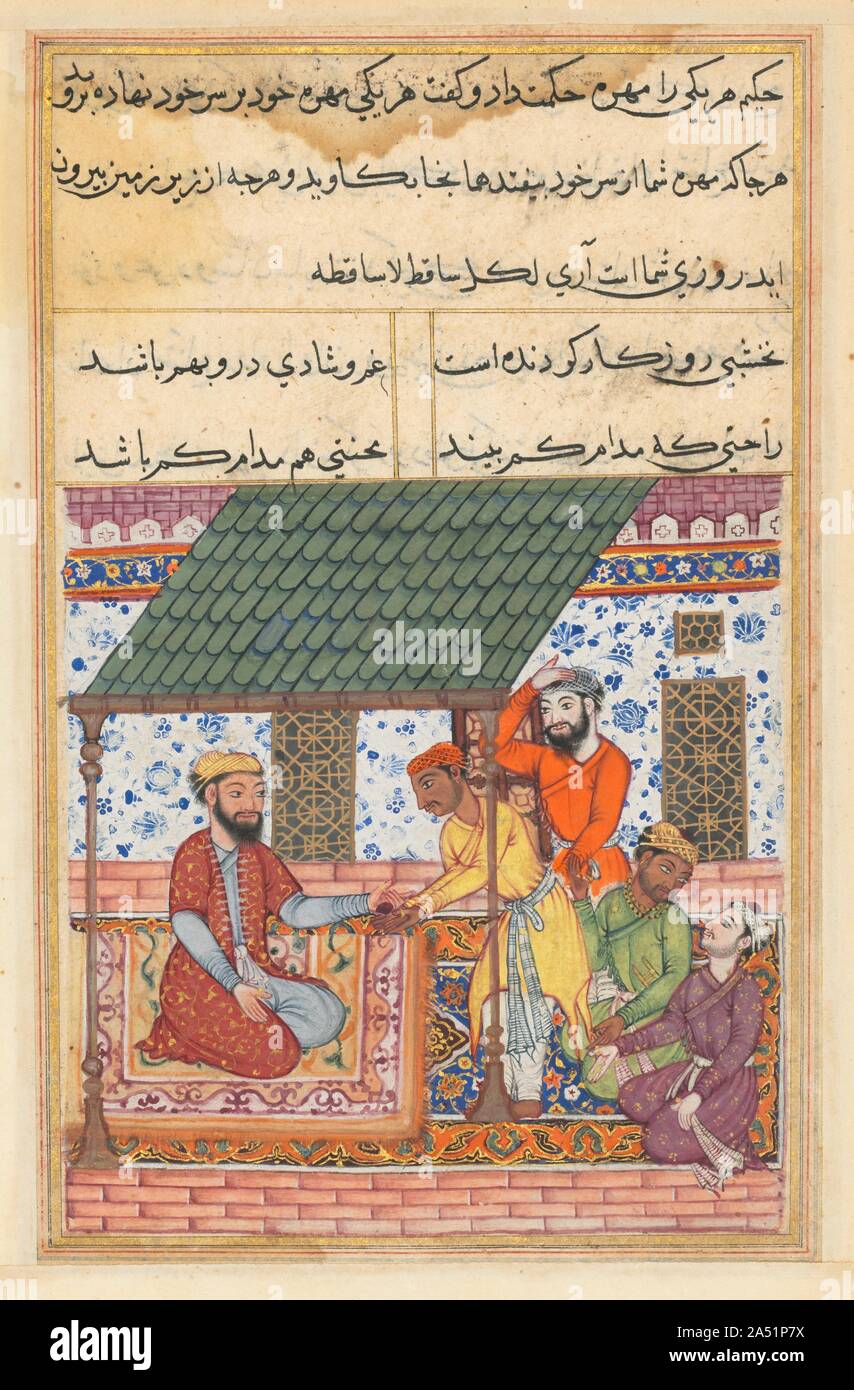 حکیم هر یکی را مهره حکمت داد و کفت هر یکی مهره خود بر سر خود نهاده بروید
هر جا که مهره شما از سر خود بیفتد هما بخا بکاوید و هرچه از زیر زمین بیرون
اید روزی شما است آری لکل ساقط لاساقطه
نخشبی روزکار کردنده است غم و شادی درو بهم باشد
راحتی که مدام کم بیند محنتی هم مدام کم باشد
alamy
alamy
Image ID: 2A51P7X
www.alamy.com